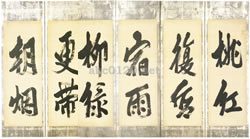 桃红
復含
宿雨
柳緑
更帯
朝烟